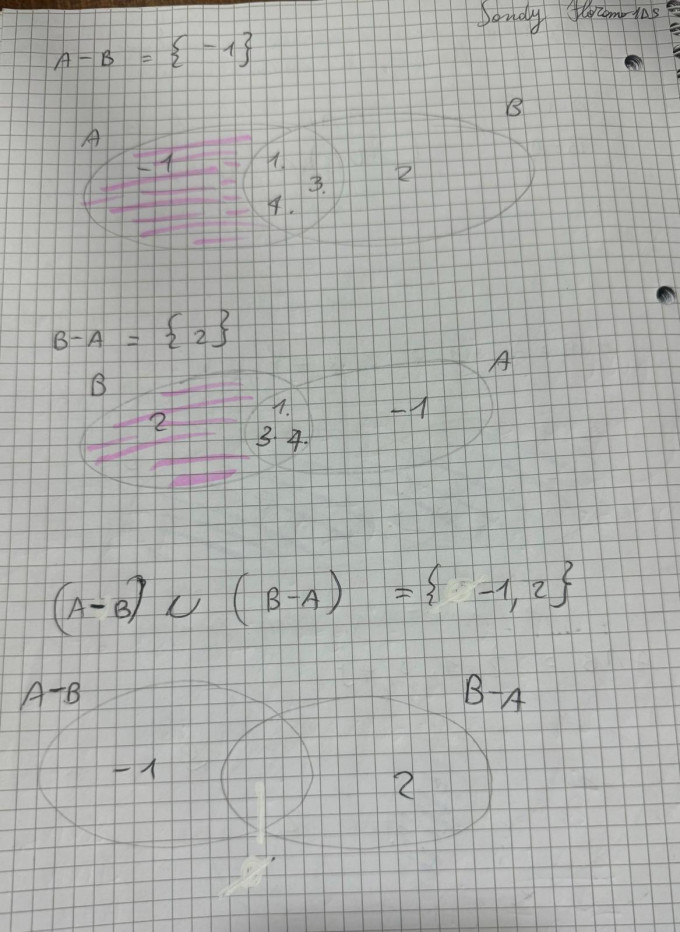 Sandy
A-B = { -1}
A B
-1 1. 3. 2
4.
B-A = { 2}
B A
2 1. -1
3. 4.
(A-B) ∪ (B-A) = { -1, 2}
A-B B-A
-1 2
Ø